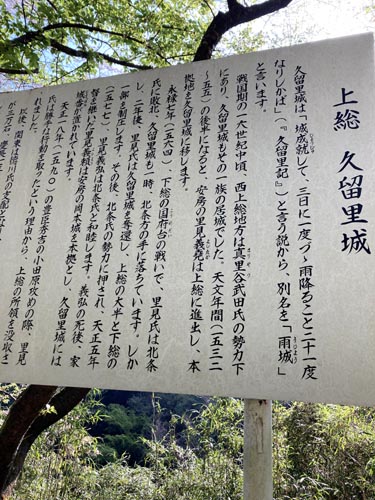 上総 久留里城
久留里城は「城成就して、三日に一度づゝ雨降ること二十一度
なりしかば」(『久留里記』)と言う説から、別名を「雨城」
うじょう
と言います。
戦国期の一六世紀中頃、西上総地方は真里谷武田氏の勢力下
にあり、久留里城もその一族の居城でした。天文年間(一五三二
~五五)の後半になると、安房の里見義堯は上総に進出し、本
拠地を久留里城に移します。
永禄七年(一五六四)、下総の国府台の戦いで、里見氏は北条
氏に敗北、久留里城も一時、北条方の手に落ちています。しか
し、二年後、里見氏は久留里城を奪還し、上総の大半と下総の
一部を制圧します。その後、北条氏の勢力に押され、天正五年
(一五七七)里見義弘は北条氏と和睦します。義弘の死後、家
督を継いだ里見義頼は安房の岡本城を本拠とし、久留里城には
城番が置かれています。
天正一八年(一五九〇)の豊臣秀吉の小田原攻めの際、里見
氏は勝手な行動を取ったという理由から、上総の所領を没収さ
れました。
以後、関東は徳川氏の支配